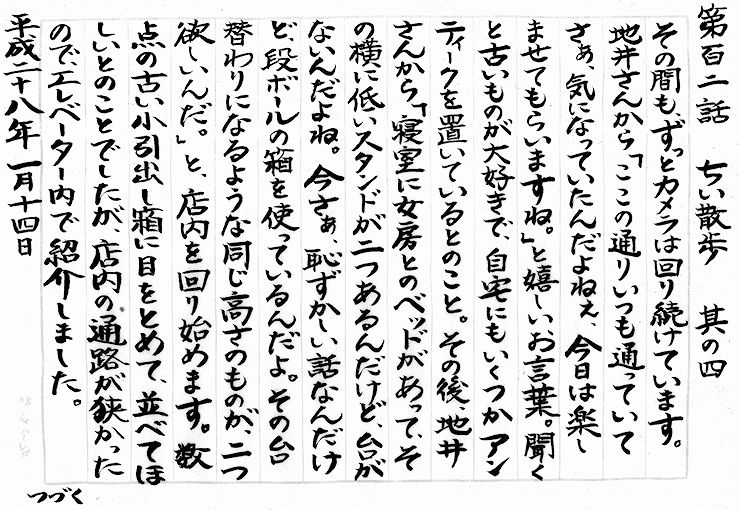 第百二話　ちい散歩　其の四
その間も、ずっとカメラは回り続けています。
地井さんから「ここの通りいつも通っていて
さぁ、気になっていたんだよねぇ、今日は楽し
ませてもらいますね。」と嬉しいお言葉。聞く
と古いものが大好きで、自宅にもいくつかアン
ティークを置いているとのこと。その後、地井
さんから「寝室に女房とのベッドがあって、そ
の横に低いスタンドが二つあるんだけど、台が
ないんだよね。今さぁ、恥ずかしい話なんだけ
ど、段ボールの箱を使っているんだよ。その台
替わりになるような同じ高さのものが、二つ
欲しいんだ。」と、店内を回り始めます。数
点の古い小引出し箱に目をとめて、並べてほ
しいとのことでしたが、店内の通路が狭かった
ので、エレベーター内で紹介しました。
平成二十八年一月十四日
つづく